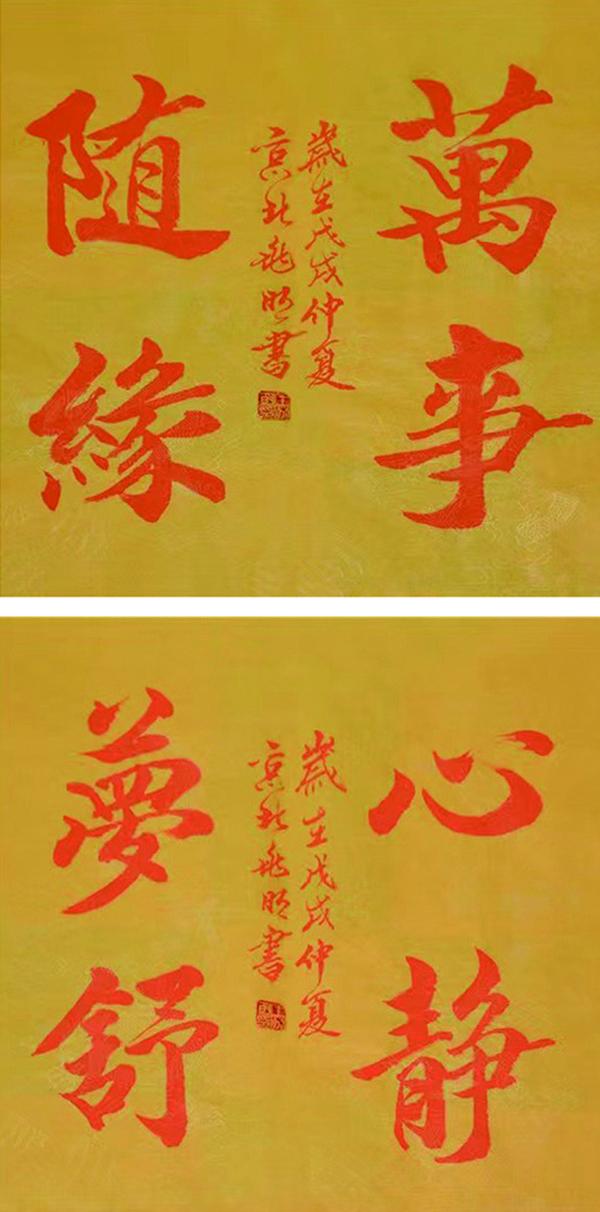 萬事
歲在戊戌仲夏
京北飛明書
随緣
心静
歲在戊戌仲夏
京北飛明書
夢舒